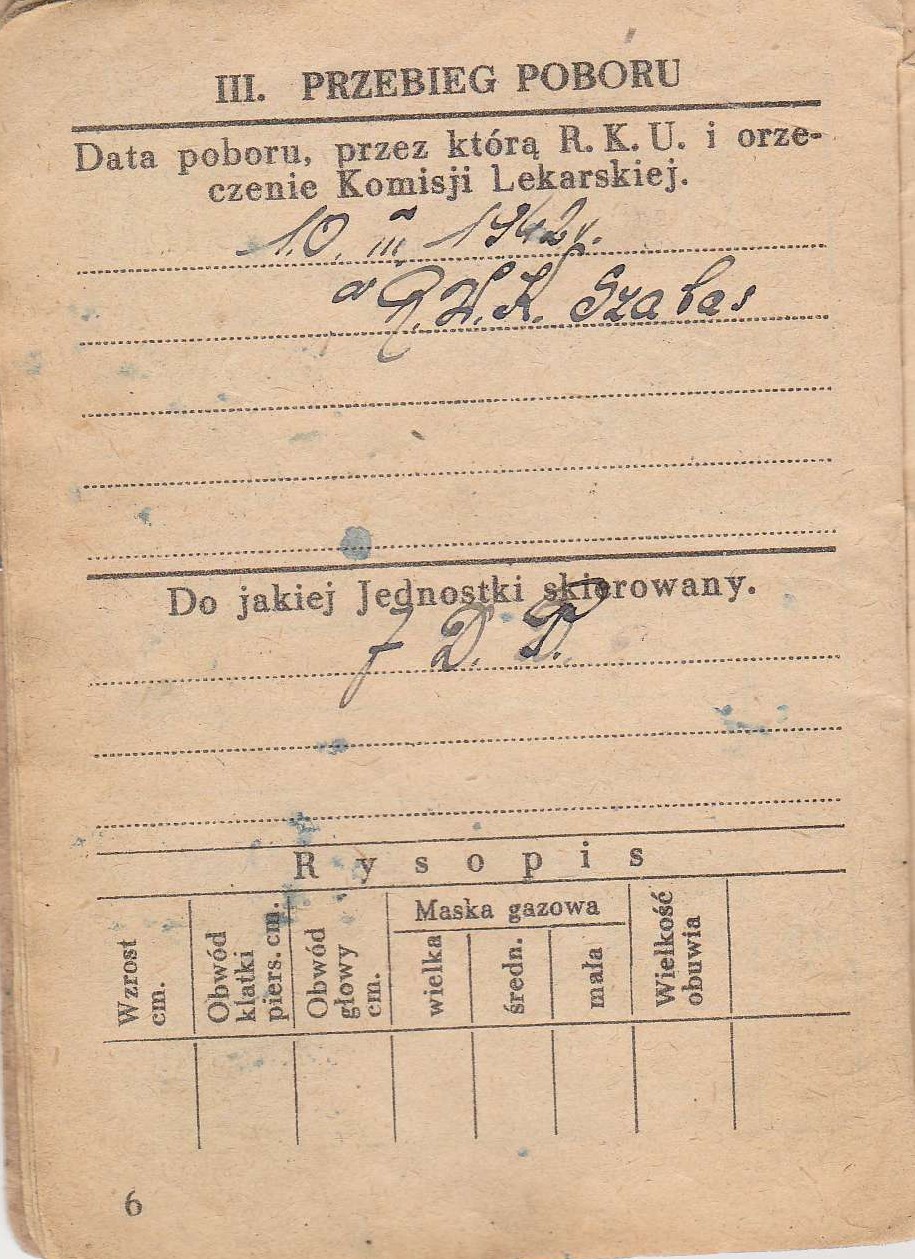 III. PRZEBIEG POBORU
Data poboru, przez którą R. K. U. i orze-
czenie Komisji Lekarskiej.
10. III 1942 r.
w R.K. Szabas
Do jakiej Jednostki skierowany.
7 D. P.
Rysopis
Wzrost cm.
Obwód klatki piers. cm.
Obwód głowy cm.
Maska gazowa
wielka
średn.
mała
Wielkość obuwia
6